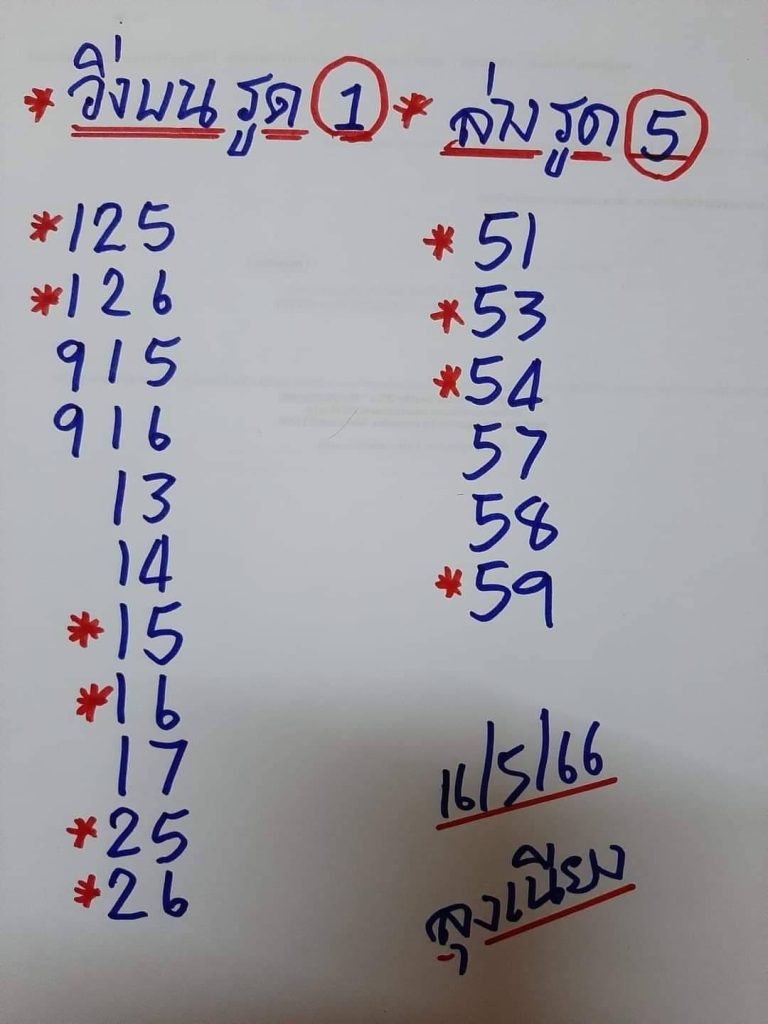 * วิ่งบน รูด 1
* 125
* 126
915
916
13
14
* 15
* 16
17
* 25
* 26
* ล่าง รูด 5
* 51
* 53
* 54
57
58
* 59
16/5/66
ลุงเนียง